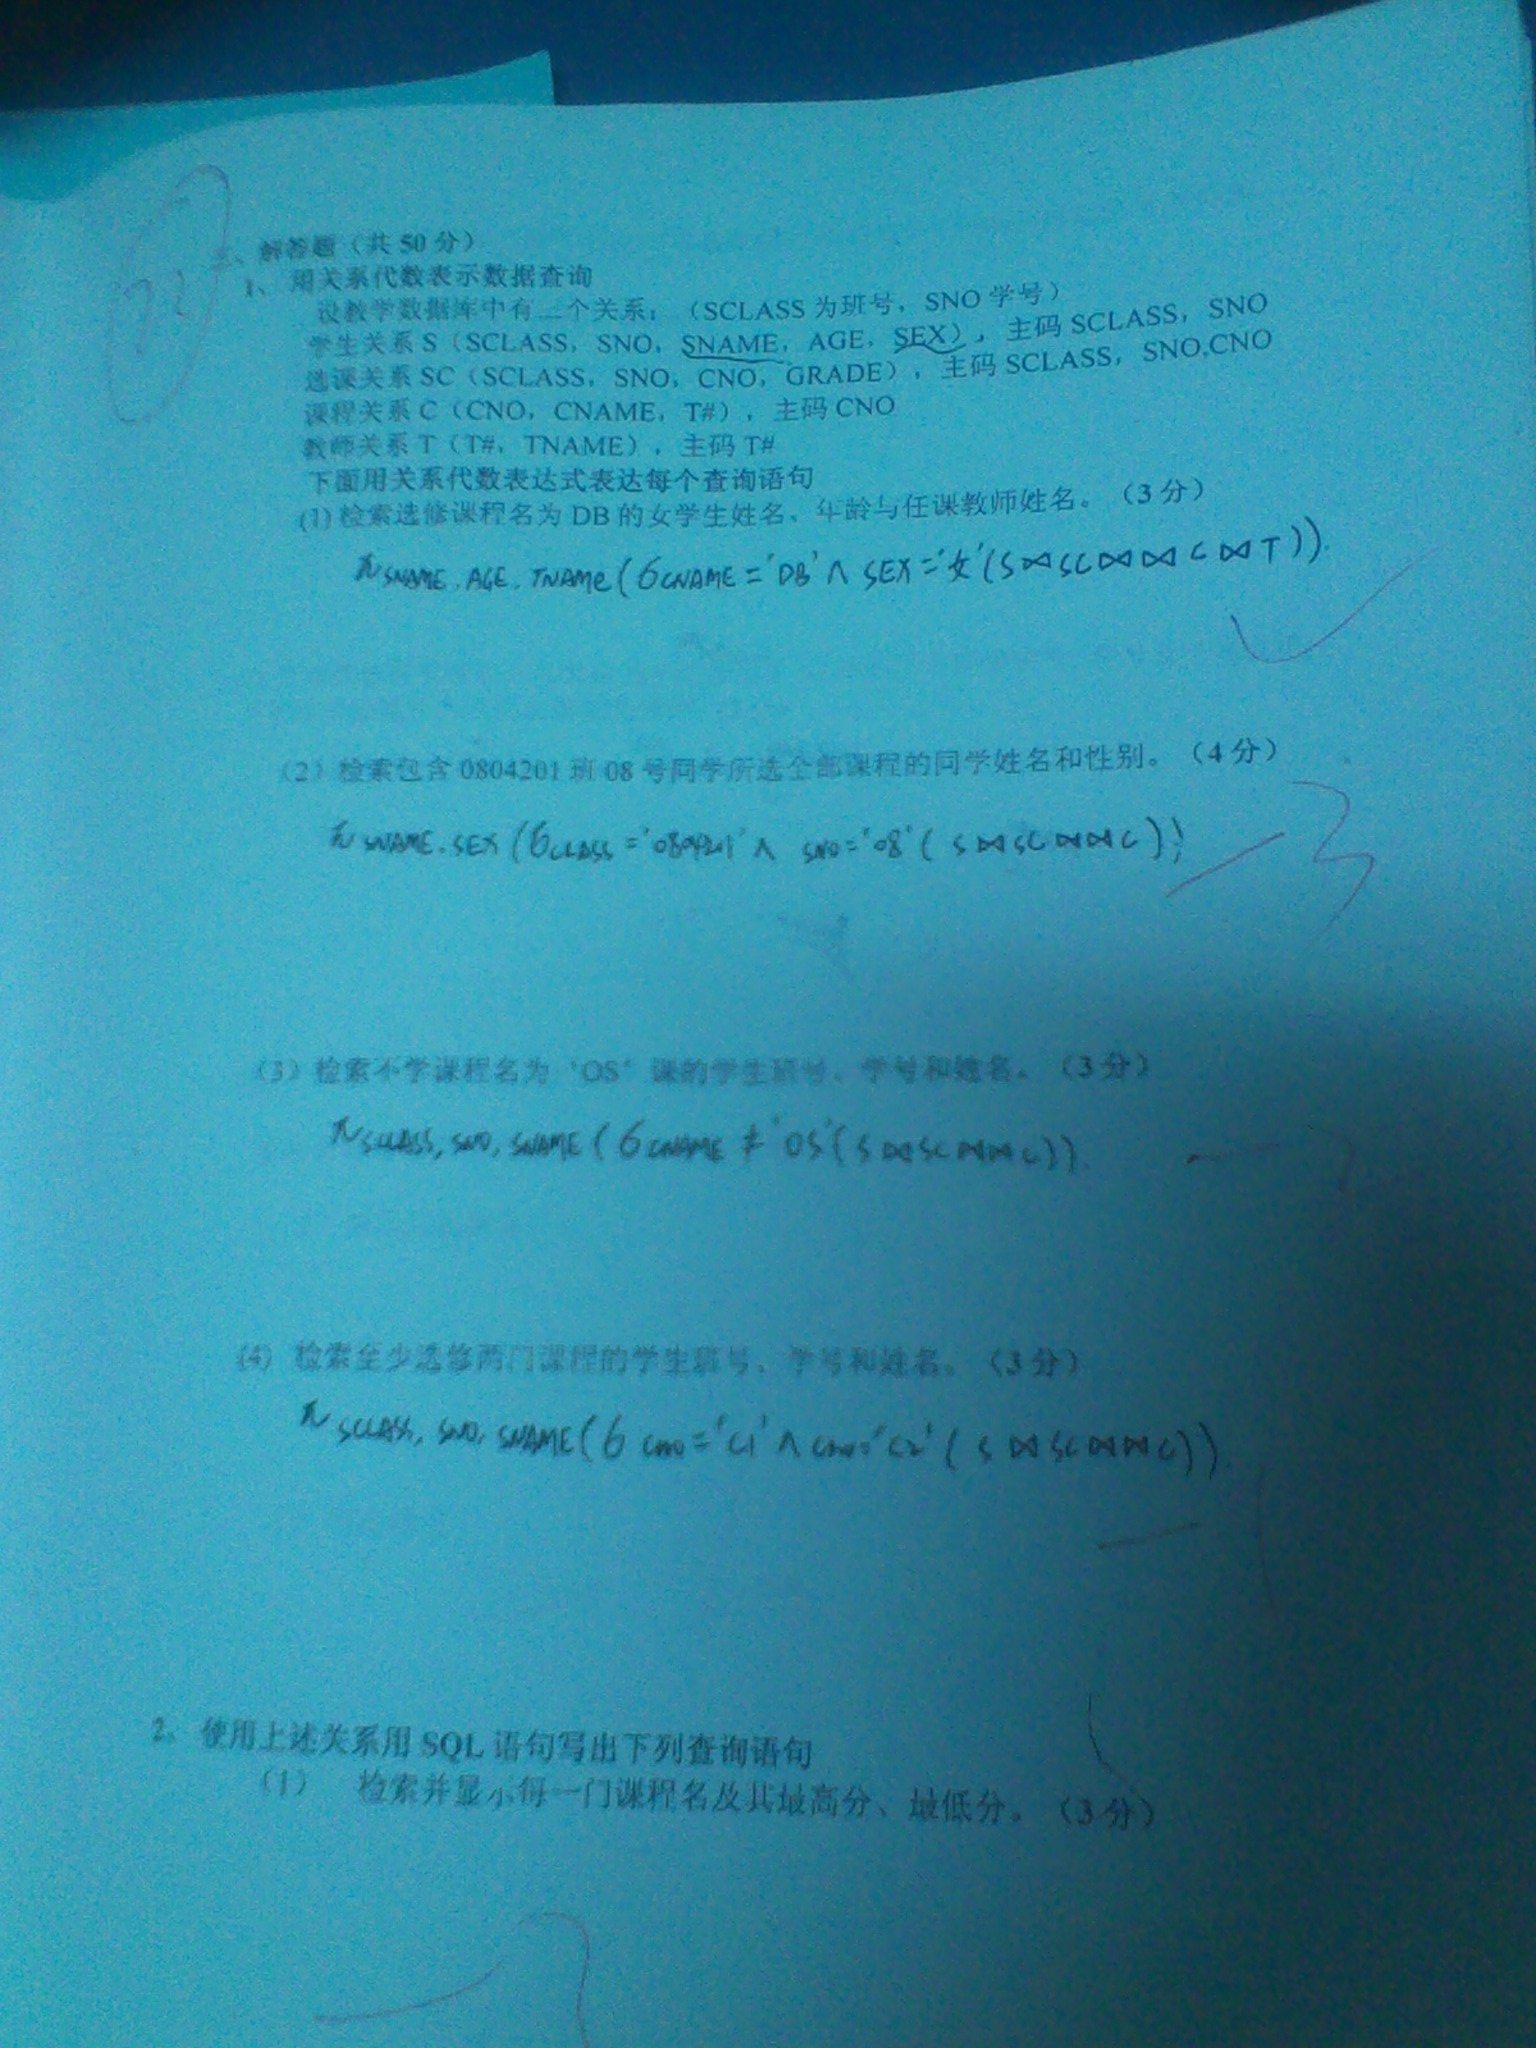 、解答题（共50分）
1、用关系代数表示数据查询
设教学数据库中有二个关系：（SCLASS为班号，SNO学号）
学生关系S（SCLASS，SNO，SNAME，AGE，SEX），主码SCLASS，SNO
选课关系SC（SCLASS，SNO，CNO，GRADE），主码SCLASS，SNO,CNO
课程关系C（CNO，CNAME，T#），主码CNO
教师关系T（T#，TNAME），主码T#
下面用关系代数表达式表达每个查询语句
(1)检索选修课程名为DB的女学生姓名、年龄与任课教师姓名。（3分）
π SNAME.AGE.TNAME(σCNAME='DB'∧SEX='女'(S⋈SC⋈⋈C⋈T)).
（2）检索包含0804201班08号同学所选全部课程的同学姓名和性别。（4分）
π SNAME.SEX(σCLASS='0804201'∧ SNO='08'(S⋈SC⋈⋈C))
-3
（3）检索不学课程名为‘OS’课的学生班号、学号和姓名。（3分）
π SCLASS, SNO, SNAME(σCNAME≠'OS'(S⋈SC⋈⋈C)).
(4) 检索至少选修两门课程的学生班号、学号和姓名。（3分）
π SCLASS, SNO, SNAME(σ CNO='C1'∧CNO='C2'(S⋈SC⋈⋈C)).
-1
2、使用上述关系用SQL语句写出下列查询语句
（1） 检索并显示每一门课程名及其最高分、最低分。（3分）